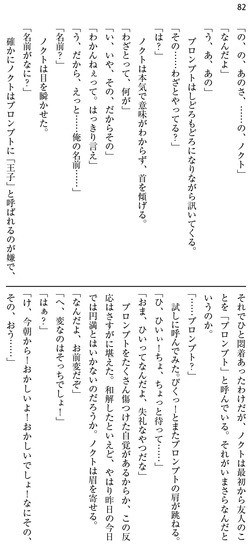 82
「の、の、あのさ、……の、ノクト」
「なんだよ」
「う、あ、あの」
プロンプトはしどろもどろになりながら訊いてくる。
「その……わざとやってる？」
「は？」
ノクトは本気で意味がわからず、首を傾げる。
「わざとって、何が」
「い、いや、その、だからその」
「わかんねぇって、はっきり言え」
「う、だから、えっと……俺の名前……」
「名前？」
ノクトは目を瞬かせた。
「名前がなに？」
確かにノクトはプロンプトに「王子」と呼ばれるのが嫌で、
それでひと悶着あったわけだが、ノクトは最初から友人のこ
とを「プロンプト」と呼んでいる。それがいまさらなんだと
いうのか。
「……プロンプト？」
試しに呼んでみた。びくっ！とまたプロンプトの肩が跳ねる。
「ひ、ひいぃ！ちょ、ちょっと待って……！」
「おま、ひいってなんだよ、失礼なやつだな」
プロンプトをたくさん傷つけた自覚があるからか、この反
応はさすがに堪えた。和解したといえど、やはり昨日の今日
では円満とはいかないのだろうか。ノクトは眉を寄せる。
「なんだよ、お前変だぞ」
「へ、変なのはそっちでしょ！」
「はぁ？」
「け、今朝から！おかしいよ！おかしいでしょ！なにその、
その、おう……」